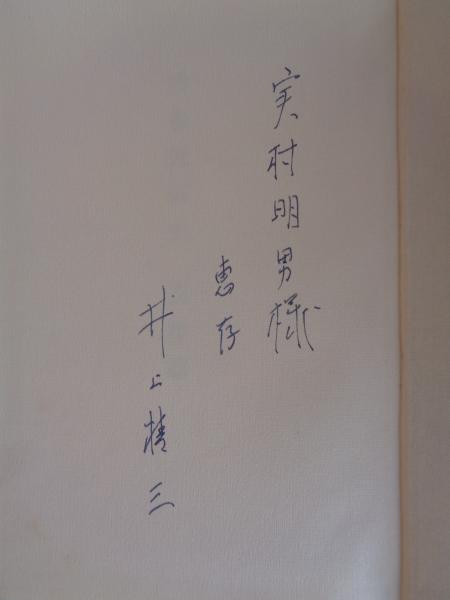 実村明男様
恵存
井上精三